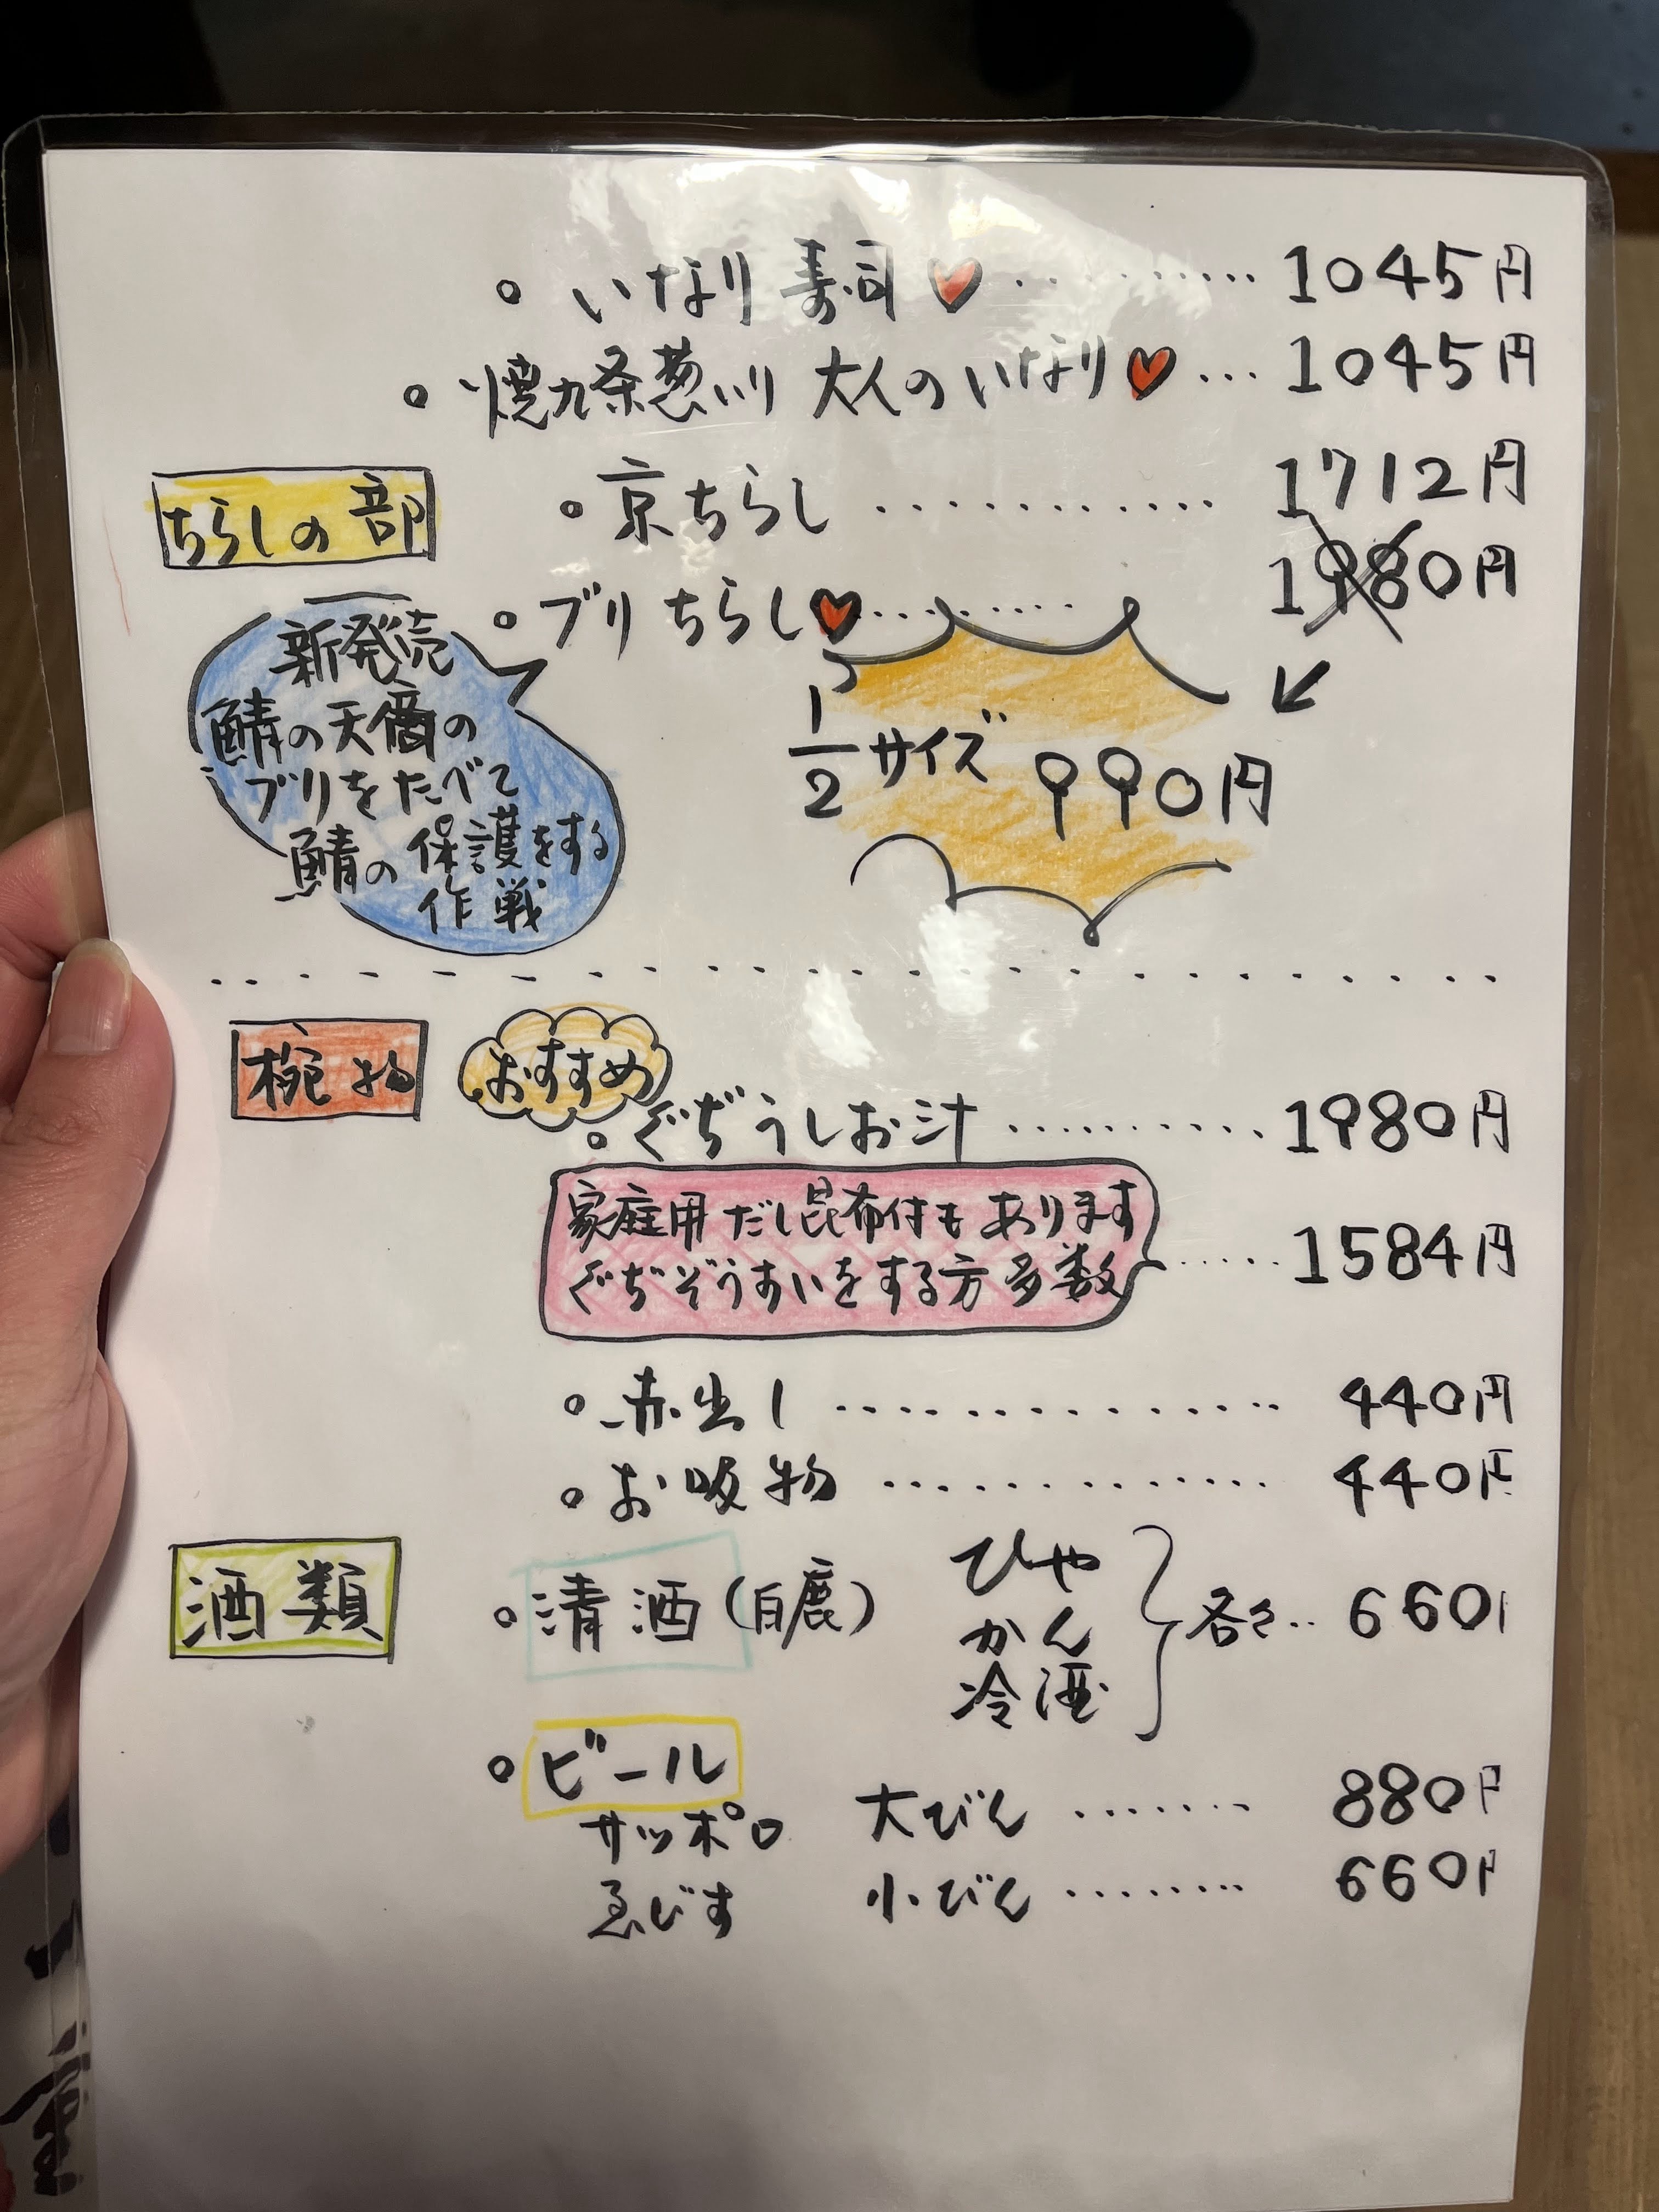 。いなり寿司 ………… 1045円
。焼九条葱入り 大人のいなり … 1045円
ちらしの部 。京ちらし ………… 1712円
。ブリちらし ……… 1980円
新発売
鯖の天敵の
ブリをたべて
鯖の保護をする
作戦
1/2サイズ 990円
椀物 おすすめ
。ぐぢうしお汁 ………… 1980円
家庭用だし昆布付もあります
ぐぢぞうすいをする方多数 …… 1584円
。赤出し ………… 440円
。お吸物 ………… 440円
酒類 。清酒(白鹿) ひや
かん 各々‥ 660円
冷酒
。ビール
サッポロ 大びん ……… 880円
ゑびす 小びん ……… 660円